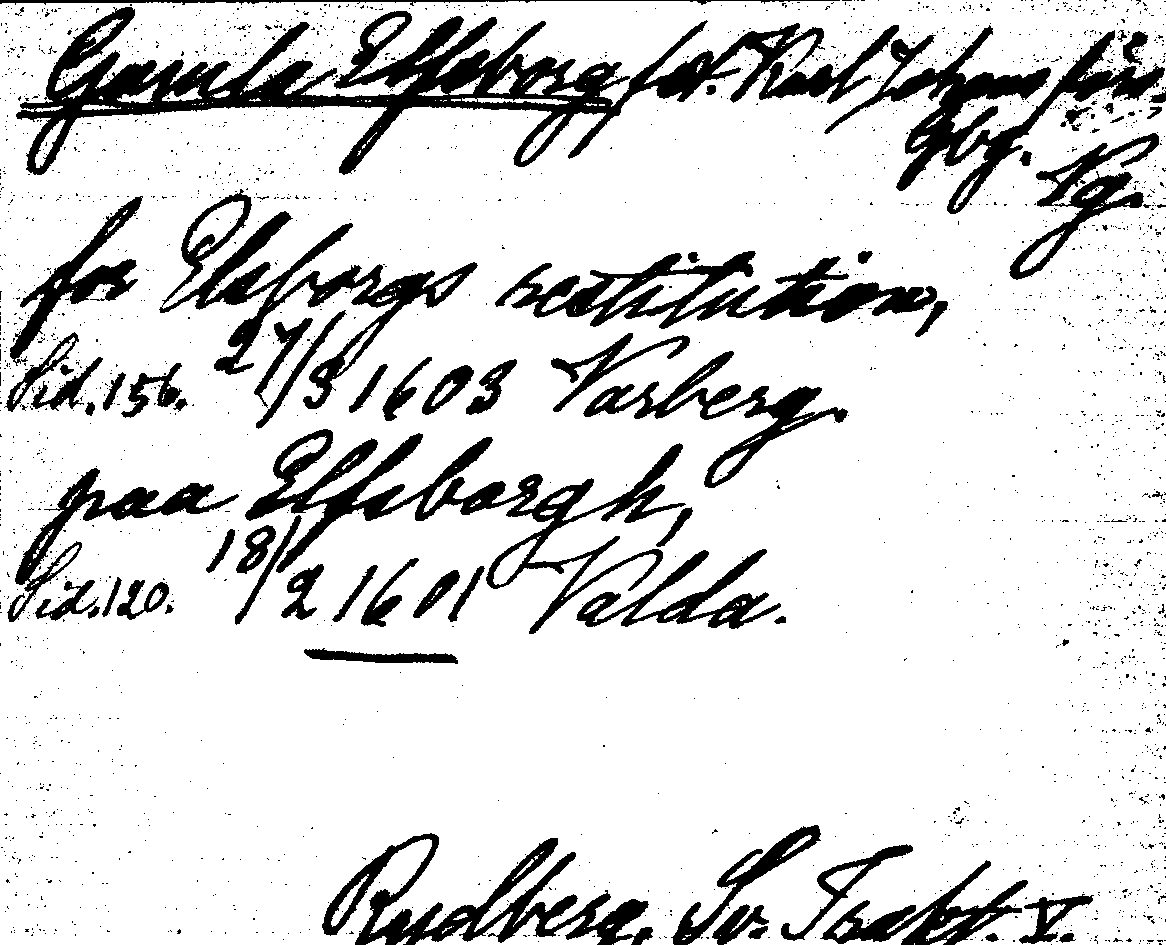 Gamla Elfsborg, fst. Karl Johans förs.
Gbg.
Vg.
for Elsborgs restitution,
Sid. 156. 27/3 1603 Varberg.
paa Elfsborgh,
Sid. 120. 18/2 1601 Valda.
Rydberg, Sv. Trakt. V.